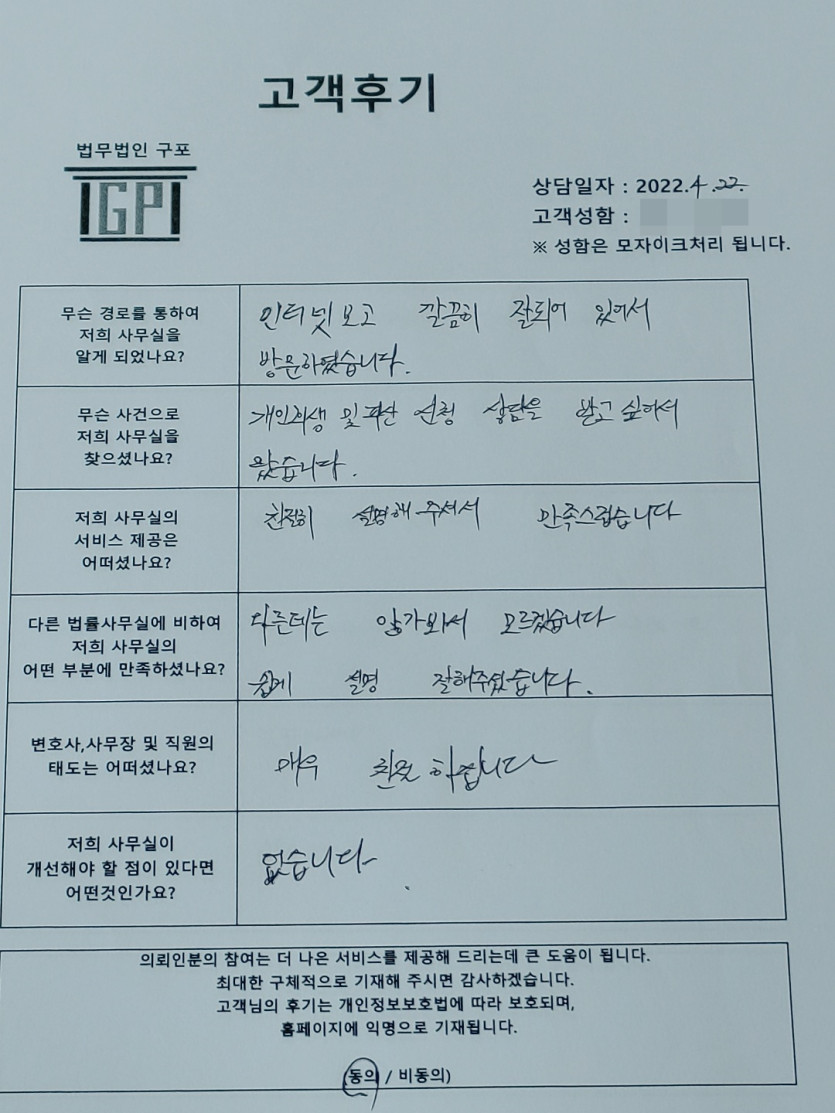 고객후기
법무법인 구포
IGPI
상담일자 : 2022.4.22.
고객성함 :
※ 성함은 모자이크처리 됩니다.
무슨 경로를 통하여
저희 사무실을
알게 되었나요?
인터넷보고 깔끔히 잘되어 있어서
방문하였습니다.
무슨 사건으로
저희 사무실을
찾으셨나요?
개인회생 및 파산 신청 상담을 받고 싶어서
왔습니다.
저희 사무실의
서비스 제공은
어떠셨나요?
친절히 설명해 주셔서 만족스럽습니다
다른 법률사무실에 비하여
저희 사무실의
어떤 부분에 만족하셨나요?
다른데는 안가봐서 모르겠습니다
쉽게 설명 잘해주셨습니다.
변호사,사무장 및 직원의
태도는 어떠셨나요?
매우 친절 하십니다
저희 사무실이
개선해야 할 점이 있다면
어떤것인가요?
없습니다
의뢰인분의 참여는 더 나은 서비스를 제공해 드리는데 큰 도움이 됩니다.
최대한 구체적으로 기재해 주시면 감사하겠습니다.
고객님의 후기는 개인정보보호법에 따라 보호되며,
홈페이지에 익명으로 기재됩니다.
(동의 / 비동의)